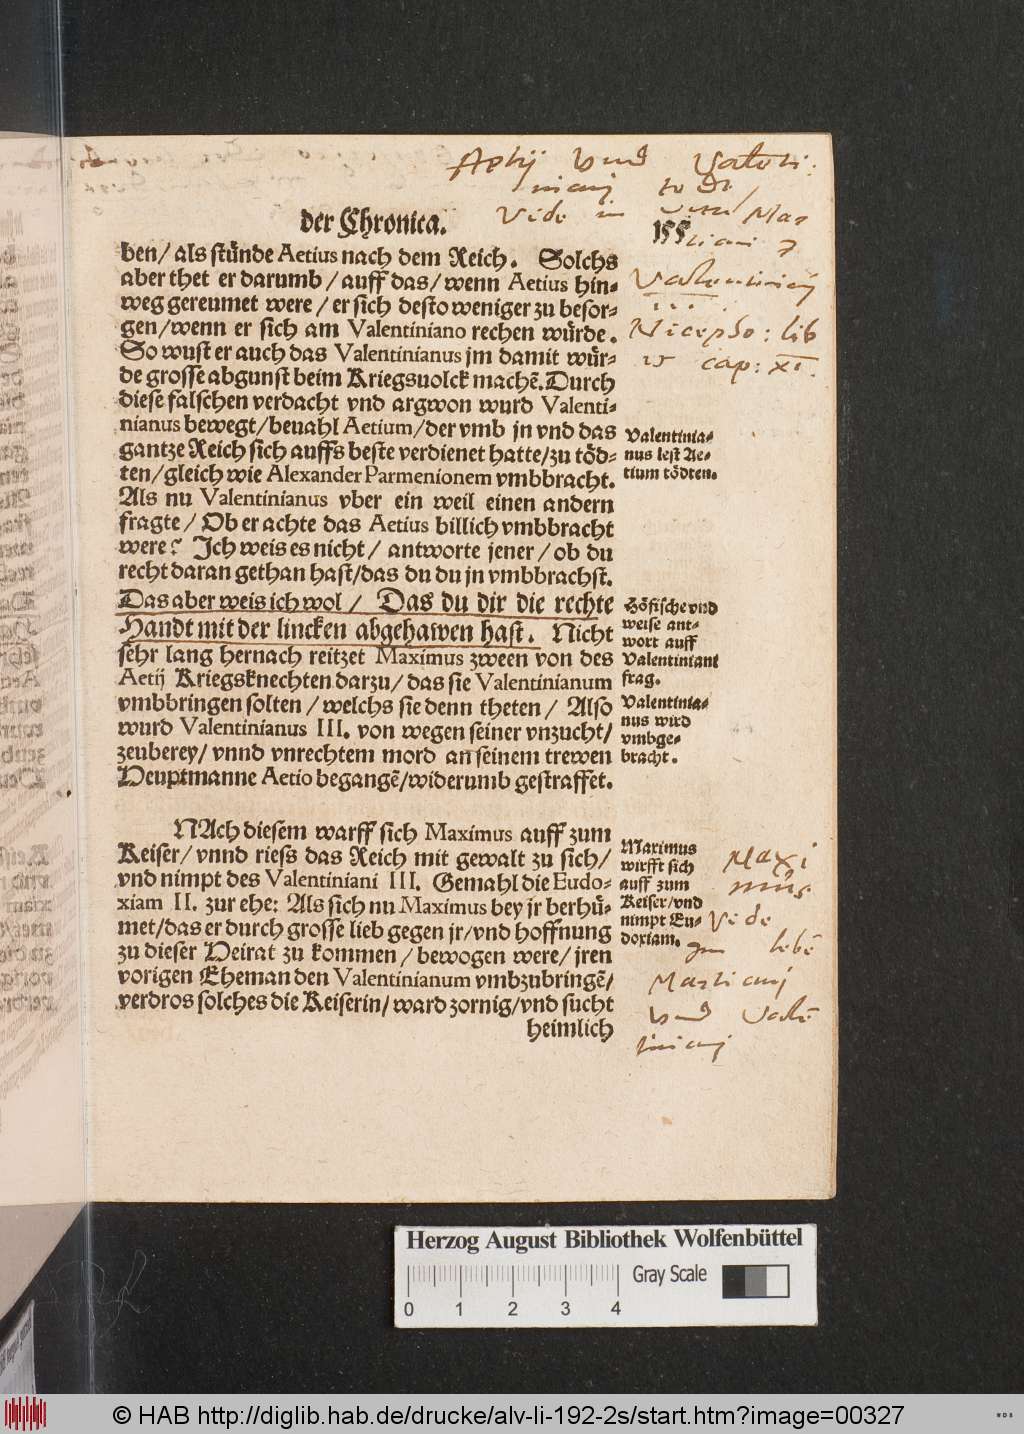 Aetij vnd Valenti:
niani todt /
Vide in vita Mar
tiani
Valentiniani
III.
Nicepho: lib
15 cap: XI.
der Chronica.
155
ben/ als stünde Aetius nach dem Reich. Solchs
aber thet er darumb / auff das / wenn Aetius hin-
weg gereumet were / er sich desto weniger zu besor-
gen/wenn er sich am Valentiniano rechen würde.
So wust er auch das Valentinianus jm damit wür-
de grosse abgunst beim Kriegsuolck machē. Durch
diese falschen verdacht vnd argwon wurd Valenti-
nianus bewegt/beuahl Aetium/der vmb jn vnd das
gantze Reich sich auffs beste verdienet hatte/zu töd-
ten/gleich wie Alexander Parmenionem vmbbracht.
Als nu Valentinianus vber ein weil einen andern
fragte / Ob er achte das Aetius billich vmbbracht
were? Ich weis es nicht / antworte jener / ob du
recht daran gethan hast/das du du jn vmbbrachst.
Das aber weis ich wol / Das du dir die rechte
Handt mit der lincken abgehawen hast. Nicht
sehr lang hernach reitzet Maximus zween von des
Aetij Kriegsknechten darzu/ das sie Valentinianum
vmbbringen solten / welchs sie denn theten / Also
wurd Valentinianus III. von wegen seiner vnzucht/
zeuberey/ vnnd vnrechtem mord an seinem trewen
Heuptmanne Aetio begangē/widerumb gestraffet.
Valentinia-
nus lest Ae-
tium tödten.
Höfische vnd
weise ant-
wort auff
Valentiniani
frag.
Valentinia-
nus wird
vmbge-
bracht.
NAch diesem warff sich Maximus auff zum
Keiser/ vnnd riess das Reich mit gewalt zu sich/
vnd nimpt des Valentiniani III. Gemahl die Eudo-
xiam II. zur ehe: Als sich nu Maximus bey jr berhü-
met/das er durch grosse lieb gegen jr/vnd hoffnung
zu dieser Heirat zu kommen / bewogen were/ jren
vorigen Eheman den Valentinianum vmbzubringē/
verdros solches die Keiserin/ ward zornig/vnd sucht
heimlich
Maximus
wirfft sich
auff zum
Keiser/vnd
nimpt Eu-
doxiam.
Maxi
mus
Vide
im lebē
Martiani
vnd Valē
tiniani
Herzog August Bibliothek Wolfenbüttel
Gray Scale
0 1 2 3 4
© HAB http://diglib.hab.de/drucke/alv-li-192-2s/start.htm?image=00327
WDB